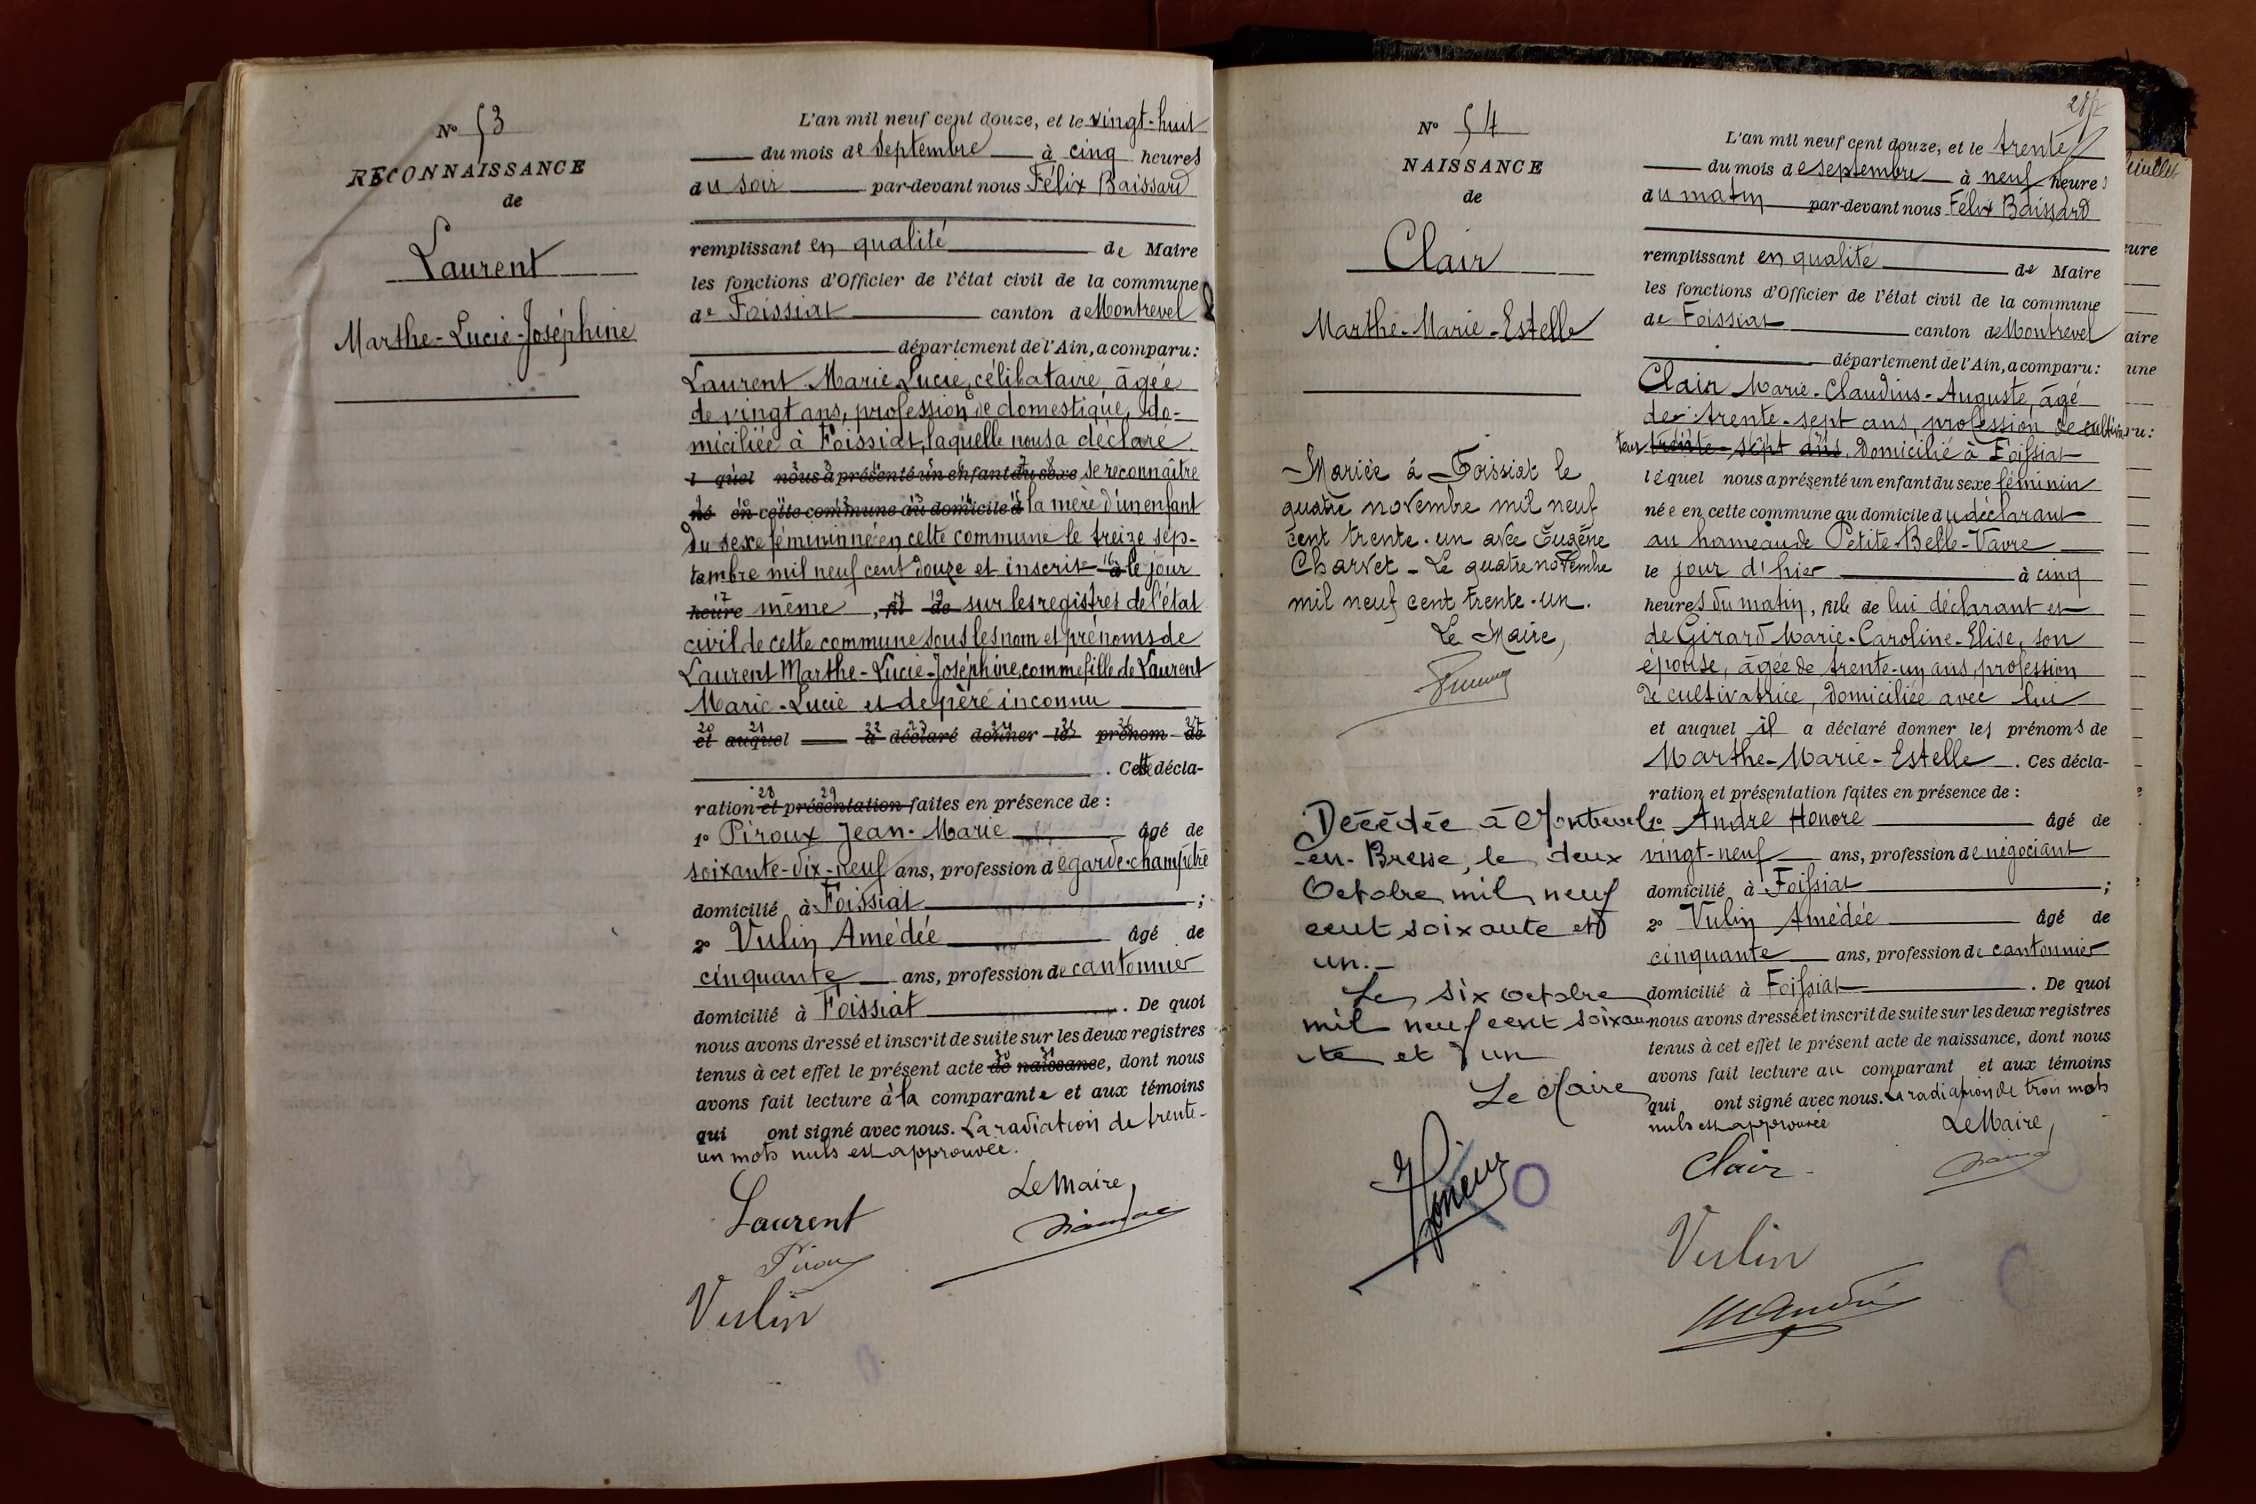 N° 53
RECONNAISSANCE
de
Laurent
Marthe-Lucie-Joséphine
L'an mil neuf cent douze, et le vingt-huit
du mois de septembre à cinq heures
du soir par-devant nous Félix Baissard
remplissant en qualité de Maire
les fonctions d'Officier de l'état civil de la commune
de Foissiat canton de Montrevel
département de l'Ain, a comparu :
Laurent Marie Lucie, célibataire, âgée
de vingt ans, profession de domestique, do-
miciliée à Foissiat, laquelle nous a déclaré
l quel nous a présenté un enfant du sexe se reconnaître
né en cette commune au domicile d la mère d'un enfant
du sexe féminin né en cette commune le treize sep-
tembre mil neuf cent douze et inscrit à le jour
heure même, fil de sur les registres de l'état
civil de cette commune sous les nom et prénoms de
Laurent Marthe-Lucie-Joséphine, comme fille de Laurent
Marie-Lucie et de père inconnu
20 21 22 23 24 25 26 27
et auquel a déclaré donner le prénom de
. Cette décla-
28 29
ration et présentation faites en présence de :
1° Piroux Jean-Marie âgé de
soixante-dix-neuf ans, profession de garde-champêtre
domicilié à Foissiat ;
2° Vulin Amédée âgé de
cinquante ans, profession de cantonnier
domicilié à Foissiat . De quoi
nous avons dressé et inscrit de suite sur les deux registres
tenus à cet effet le présent acte de naissance, dont nous
avons fait lecture à la comparante et aux témoins
qui ont signé avec nous. La radiation de trente-
un mots nuls est approuvée.
Le Maire,
Laurent
Piroux
Vulin
N° 54
NAISSANCE
de
Clair
Marthe-Marie-Estelle
Mariée à Foissiat le
quatre novembre mil neuf
cent trente-un avec Eugène
Charvet - Le quatre novembre
mil neuf cent trente-un.
Le Maire,
Décédée à Montrevel
-en-Bresse, le deux
Octobre mil neuf
cent soixante et
un.-
Le six octobre
mil neuf cent soixan-
te et un
Le Maire
L'an mil neuf cent douze, et le trente
du mois de septembre à neuf heures
du matin par-devant nous Félix Baissard
remplissant en qualité de Maire
les fonctions d'Officier de l'état civil de la commune
de Foissiat canton de Montrevel
département de l'Ain, a comparu :
Clair Marie-Claudius-Auguste, âgé
de trente-sept ans, profession de cultiva
teur trente-sept ans, domicilié à Foissiat
lequel nous a présenté un enfant du sexe féminin
née en cette commune au domicile du déclarant
au hameau de Petite-Belle-Vavre
le jour d'hier à cinq
heures du matin, fille de lui déclarant et
de Girard Marie-Caroline-Elise, son
épouse, âgée de trente-un ans, profession
de cultivatrice, domiciliée avec lui
et auquel il a déclaré donner les prénoms de
Marthe-Marie-Estelle . Ces décla-
ration et présentation faites en présence de :
1° André Honoré âgé de
vingt-neuf ans, profession de négociant
domicilié à Foissiat ;
2° Vulin Amédée âgé de
cinquante ans, profession de cantonnier
domicilié à Foissiat . De quoi
nous avons dressé et inscrit de suite sur les deux registres
tenus à cet effet le présent acte de naissance, dont nous
avons fait lecture au comparant et aux témoins
qui ont signé avec nous. La radiation de trois mots
nuls est approuvée
Le Maire,
Clair
Vulin